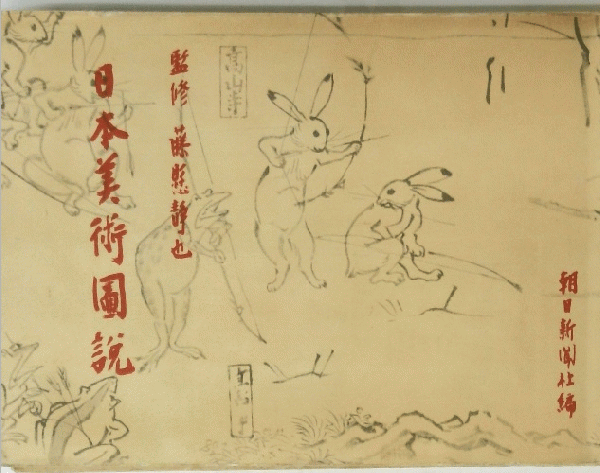 日本美術圖説
監修 藤懸静也
高山寺
高山寺
朝日新聞社編